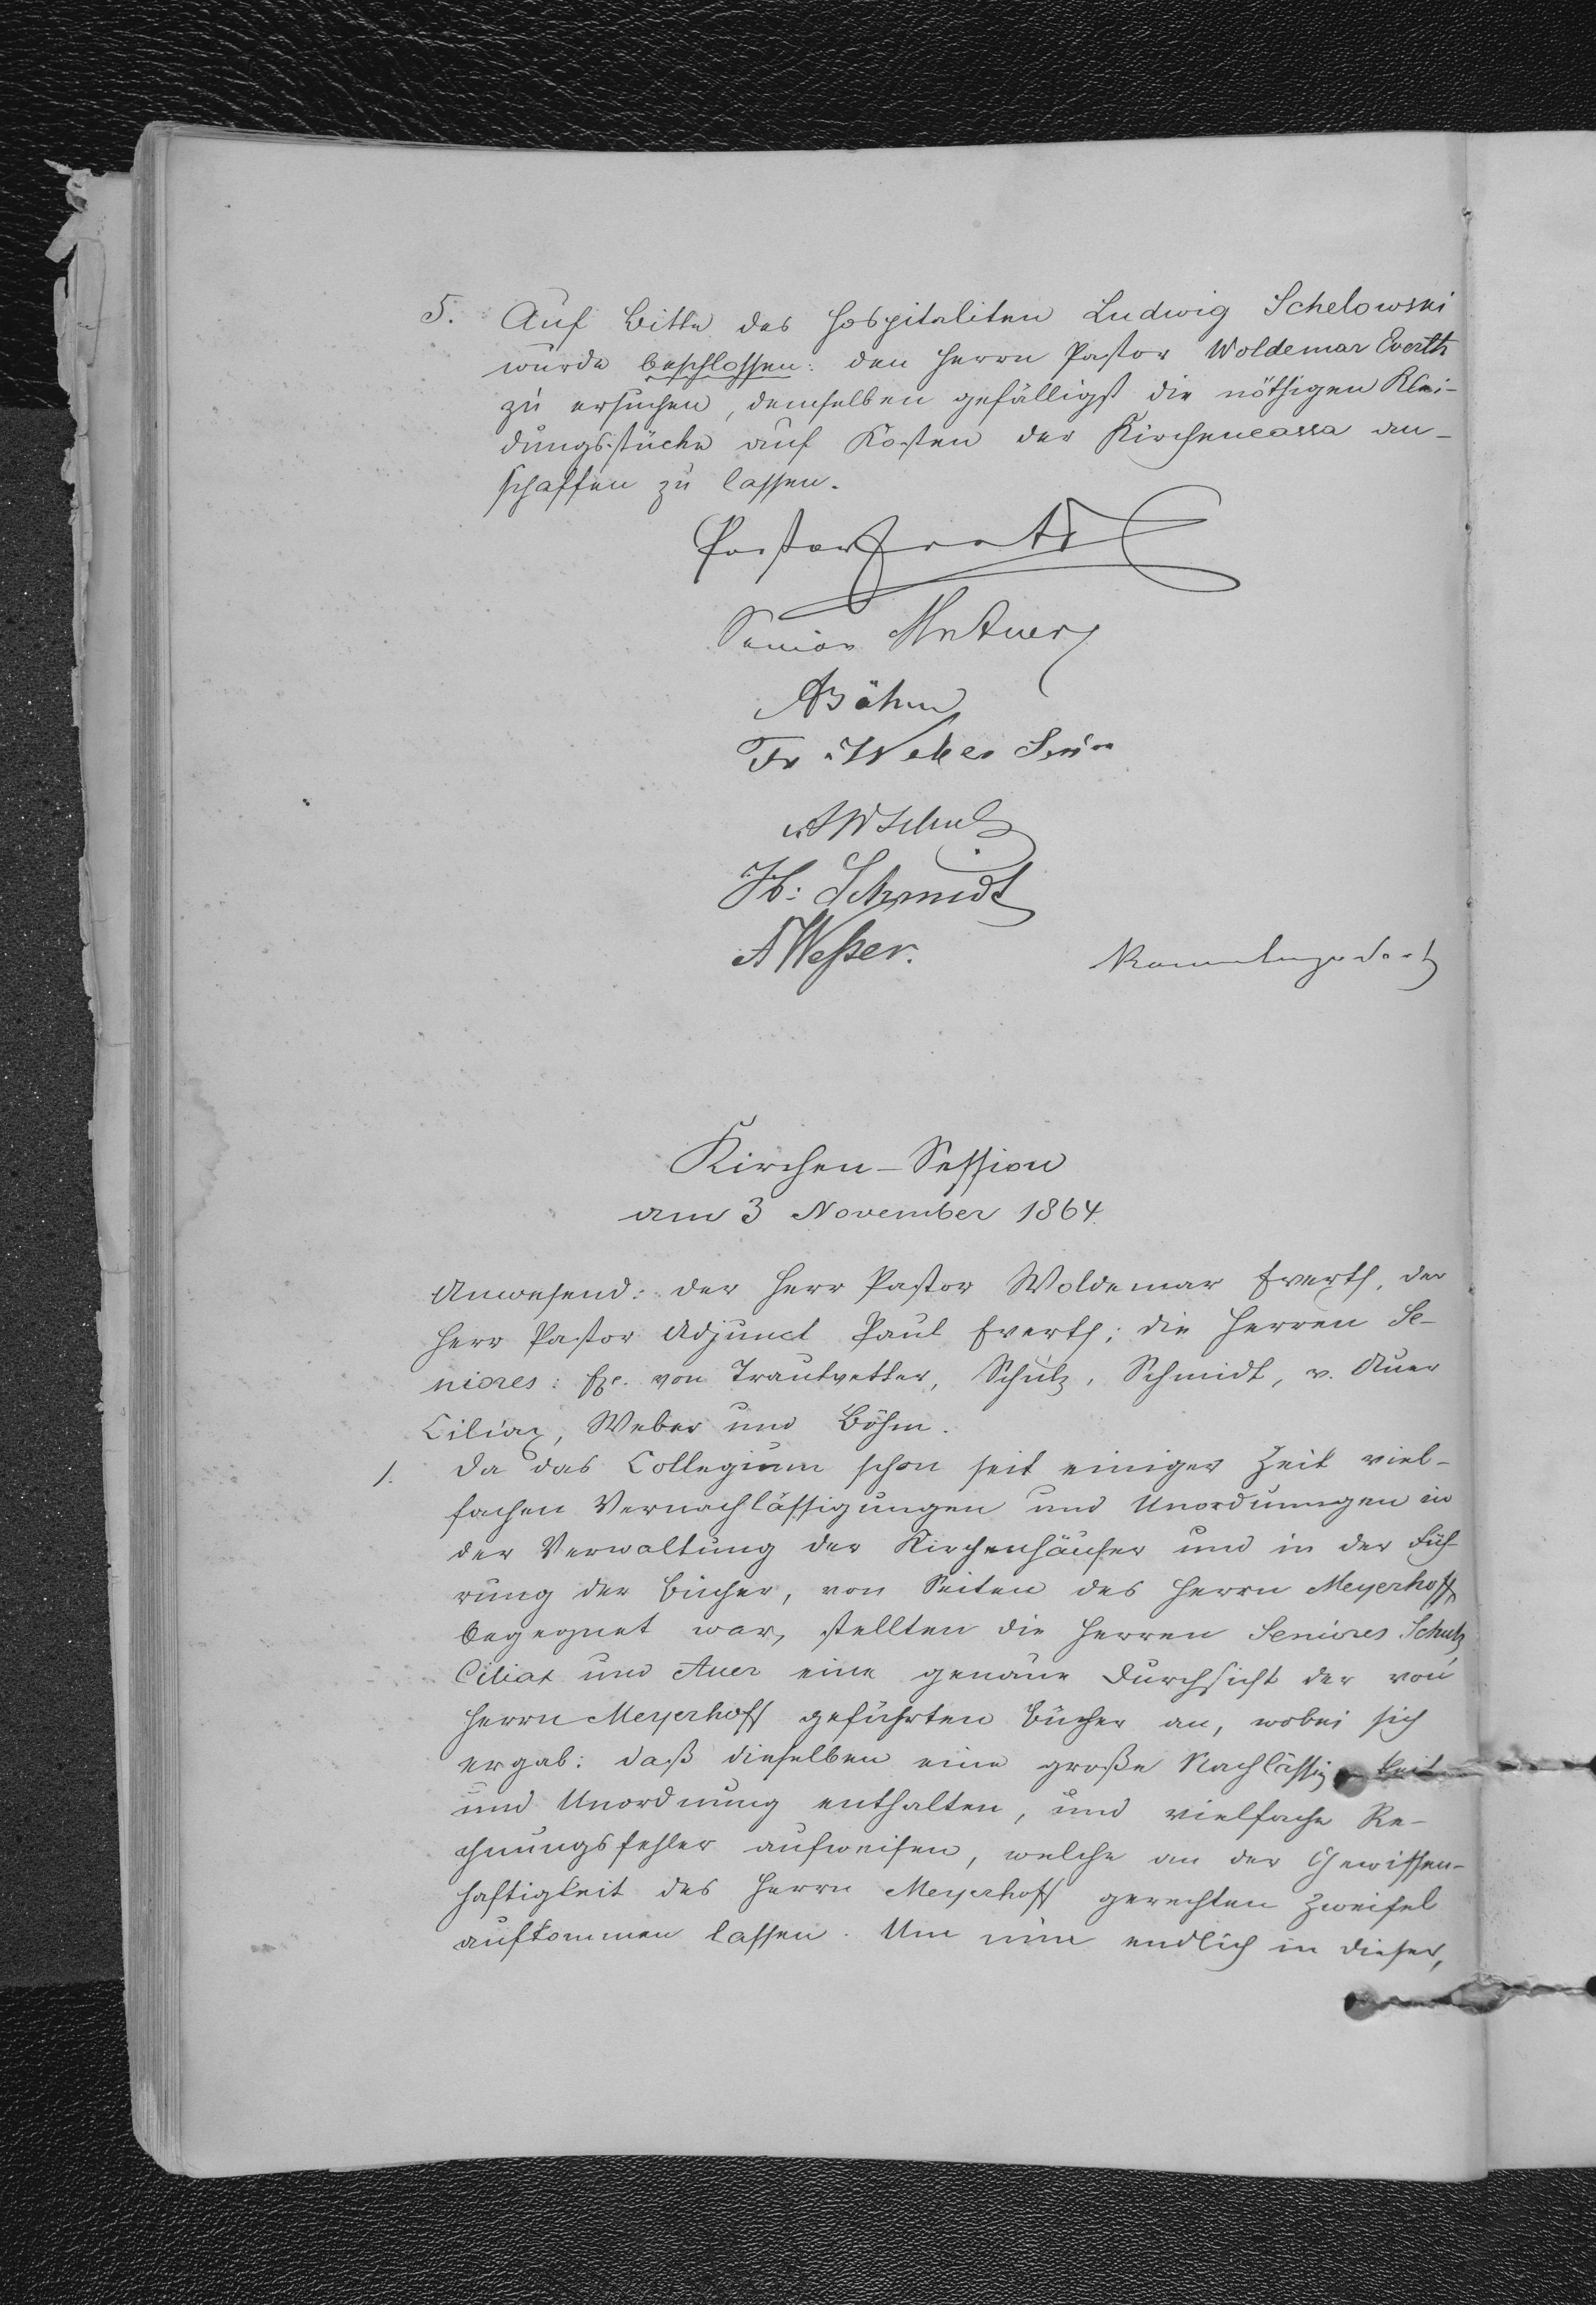 5. Auf Bitte des Hospitaliten Ludwig Schelowski
wurde beschlossen: den Herrn Pastor Woldemar Everth
zu ersuchen, demselben gefälligst die nöthigen Klei-
dungsstücke auf Kosten der Kirchencassa an-
schaffen zu lassen.
Pastor Everth
Senior Auer
ABöhm
Fr Weber Senior
AWSchulz
Hb: Schmidt
AWesser.
Kirchen-Session
am 3 November 1864.
Anwesend: der Herr Pastor Woldemar Everth, der
Herr Pastor Adjunct Paul Everth; die Herren Se-
niores: Exc. von Trautvetter, Schulz, Schmidt, v. Auer
Ciliax, Weber und Böhm.
1. Da das Collegium schon seit einiger Zeit viel-
fachen Vernachlässigungen und Unordnungen in
der Verwaltung der Kirchenhäuser und in der Füh-
rung der Bücher, von Seiten des Herrn Meyerhoff,
begegnet war, stellten die Herren Seniores Schulz,
Ciliax und Auer eine genaue Durchsicht der von
Herrn Meyerhoff geführten Bücher an, wobei sich
ergab: daß dieselben eine große Nachlässigkeit
und Unordnung enthalten, und vielfache Re-
chnungsfehler aufweisen, welche an der Gewissen-
haftigkeit des Herrn Meyerhoff gerechten Zweifel
aufkommen lassen. Um nun endlich in dieser,